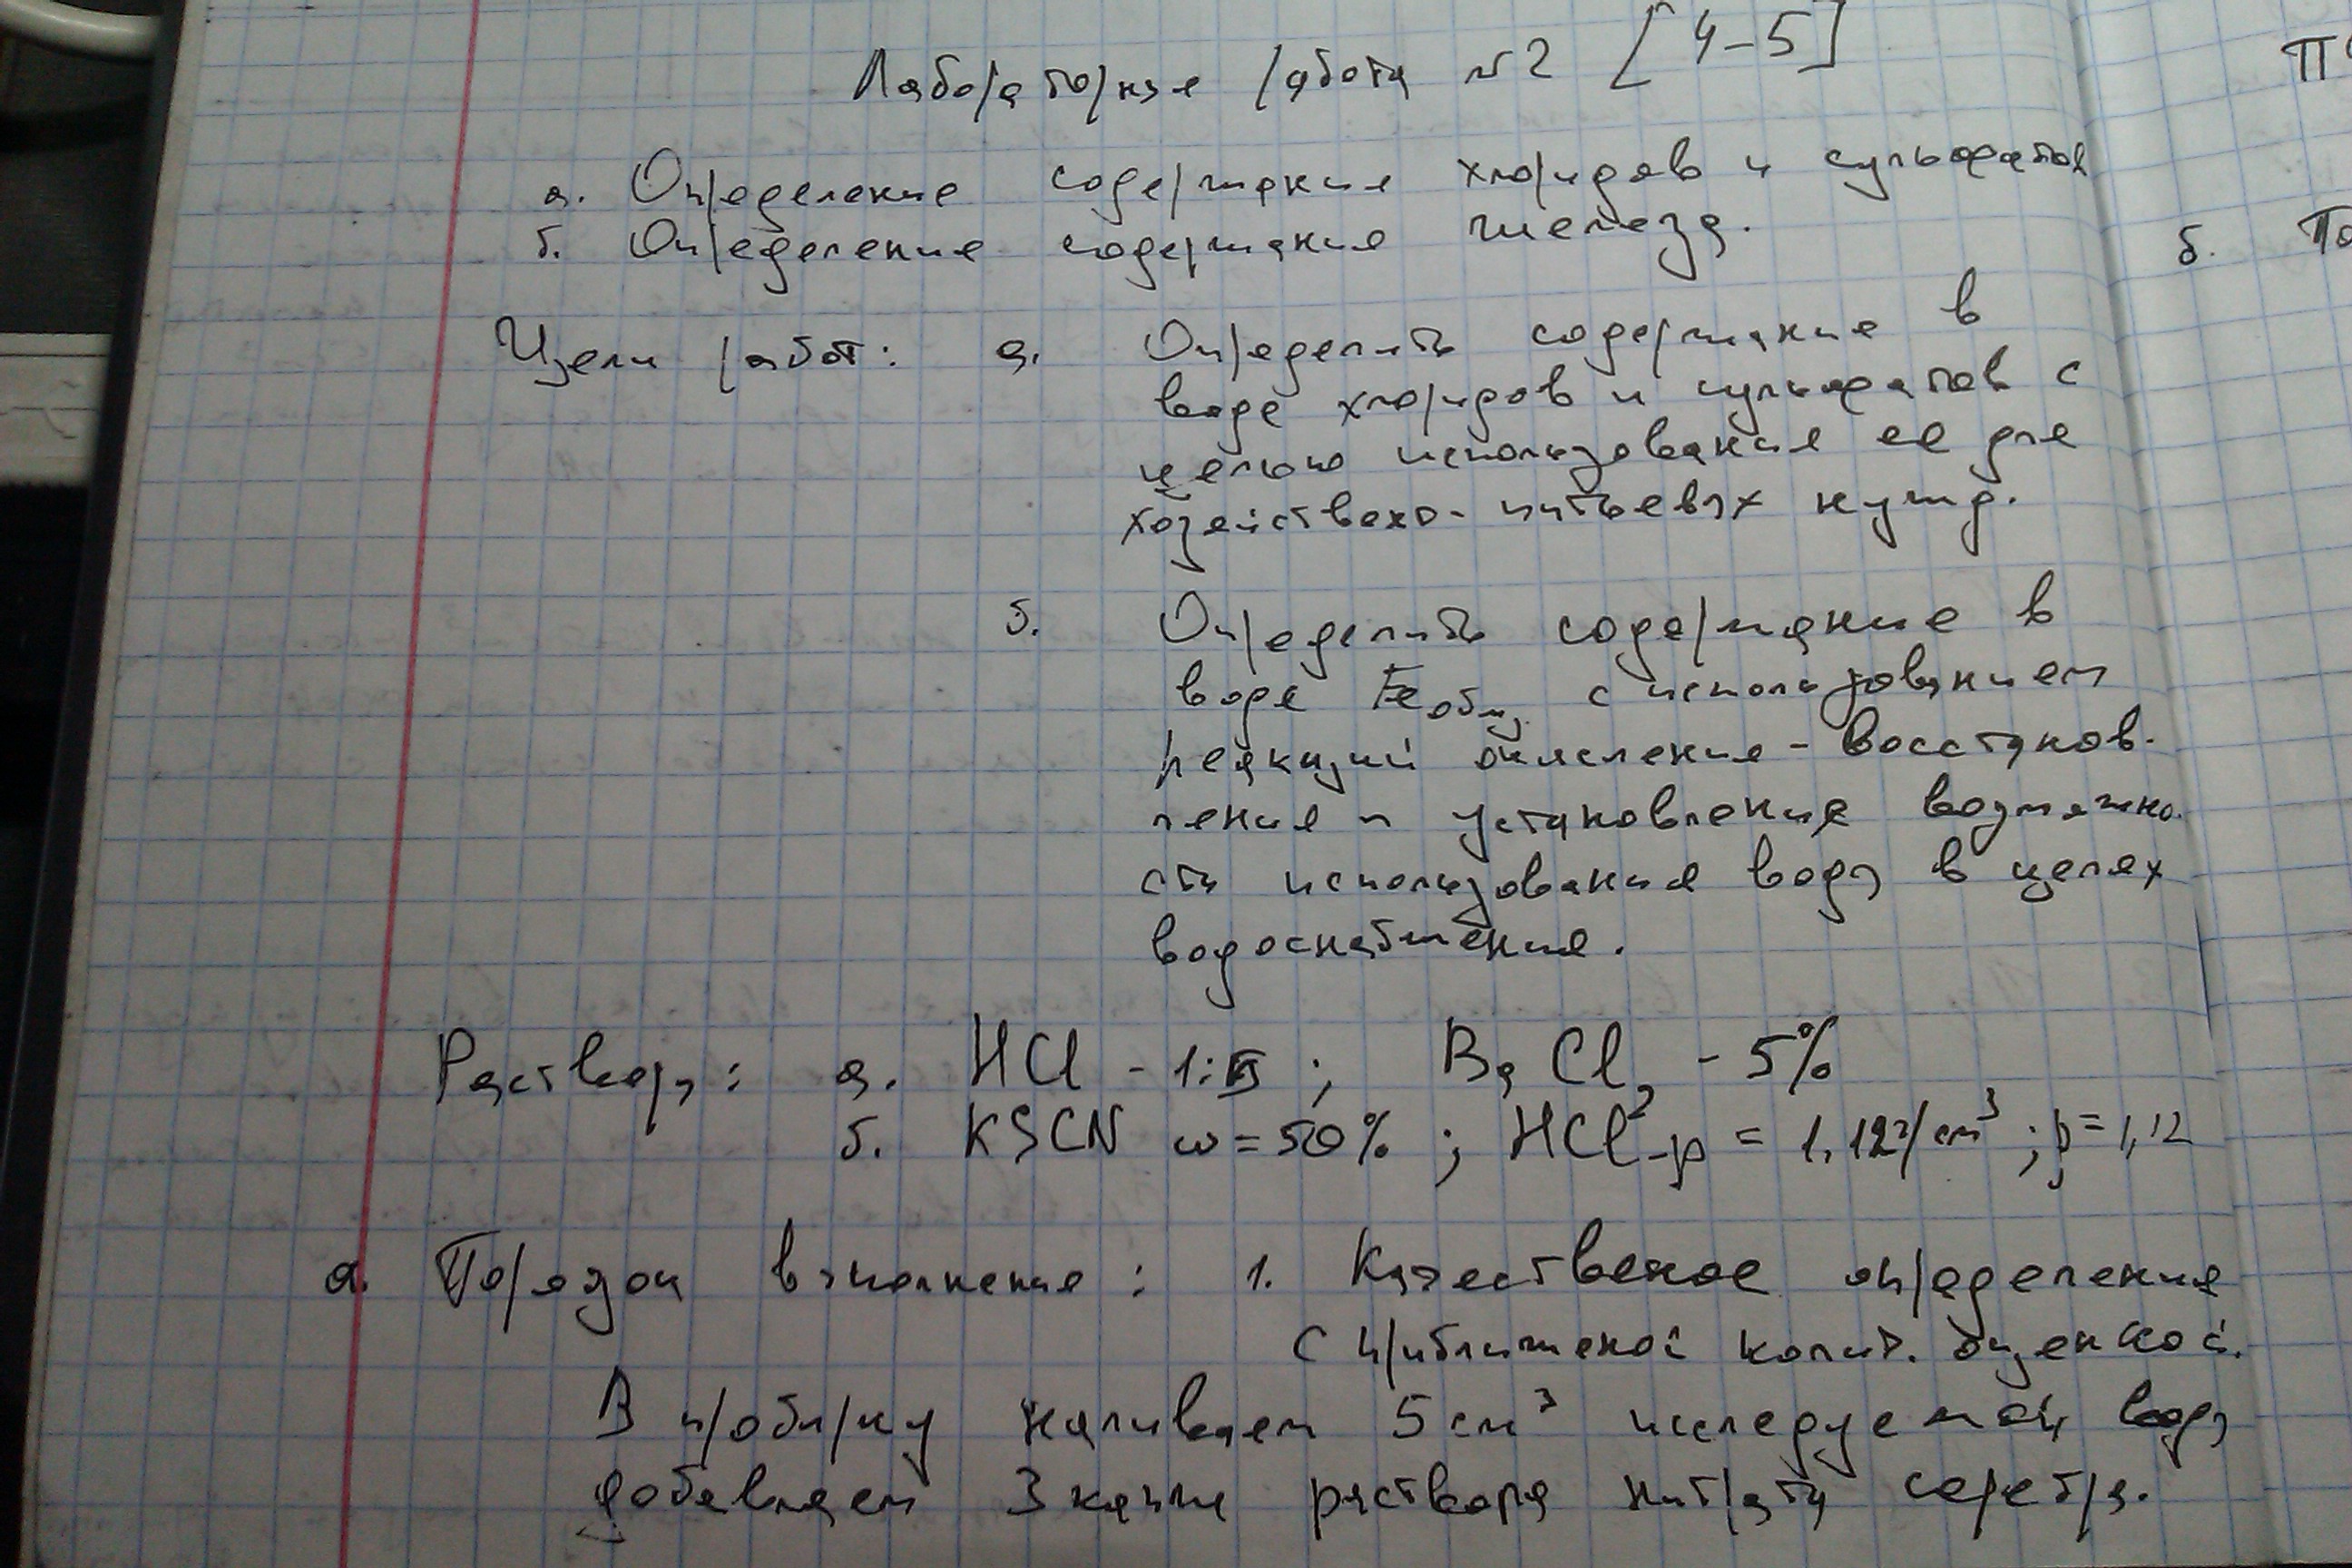 Лабораторная работа №2 [4-5]
а. Определение содержания хлоридов и сульфатов
б. Определение содержания железа.
Цели работ: а. Определить содержание в
воде хлоридов и сульфатов с
целью использования ее для
хозяйствено-питьевых нужд.
б. Определить содержание в
воде Fe общ. с использованием
реакций окисления-восстанов-
ления и установления возможно-
сти использования воды в целях
водоснабжения.
Растворы: а. HCl - 1: ; BaCl₂ - 5%
б. KSCN ω=50% ; HCl-ρ = 1,12г/см³ ; ρ=1,12
а. Порядок выполнения: 1. Качественое определение
с приближеной колич. оценкой.
В пробирку наливаем 5 см³ исследуемой воды
добавляем 3 капли раствора нитрата серебра.
б.